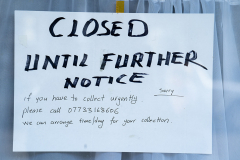 CLOSED
UNTIL FURTHER
NOTICE
Sorry
if you have to collect urgently
please call 07733168606
we can arrange time/day for your collection.